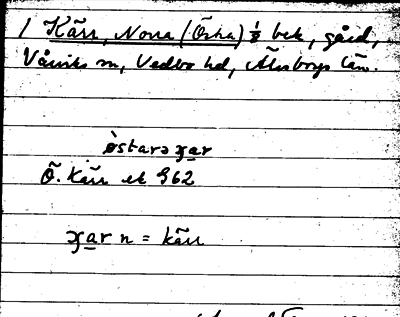 1 Kärr, Norra (Östra) ⅛ bek, gård,
Vårviks sn, Vedbo hd, Älvsborgs län.
òstarə χ̧a̠r
Ö. Kärr ek 962
χ̧a̠r n = kärr